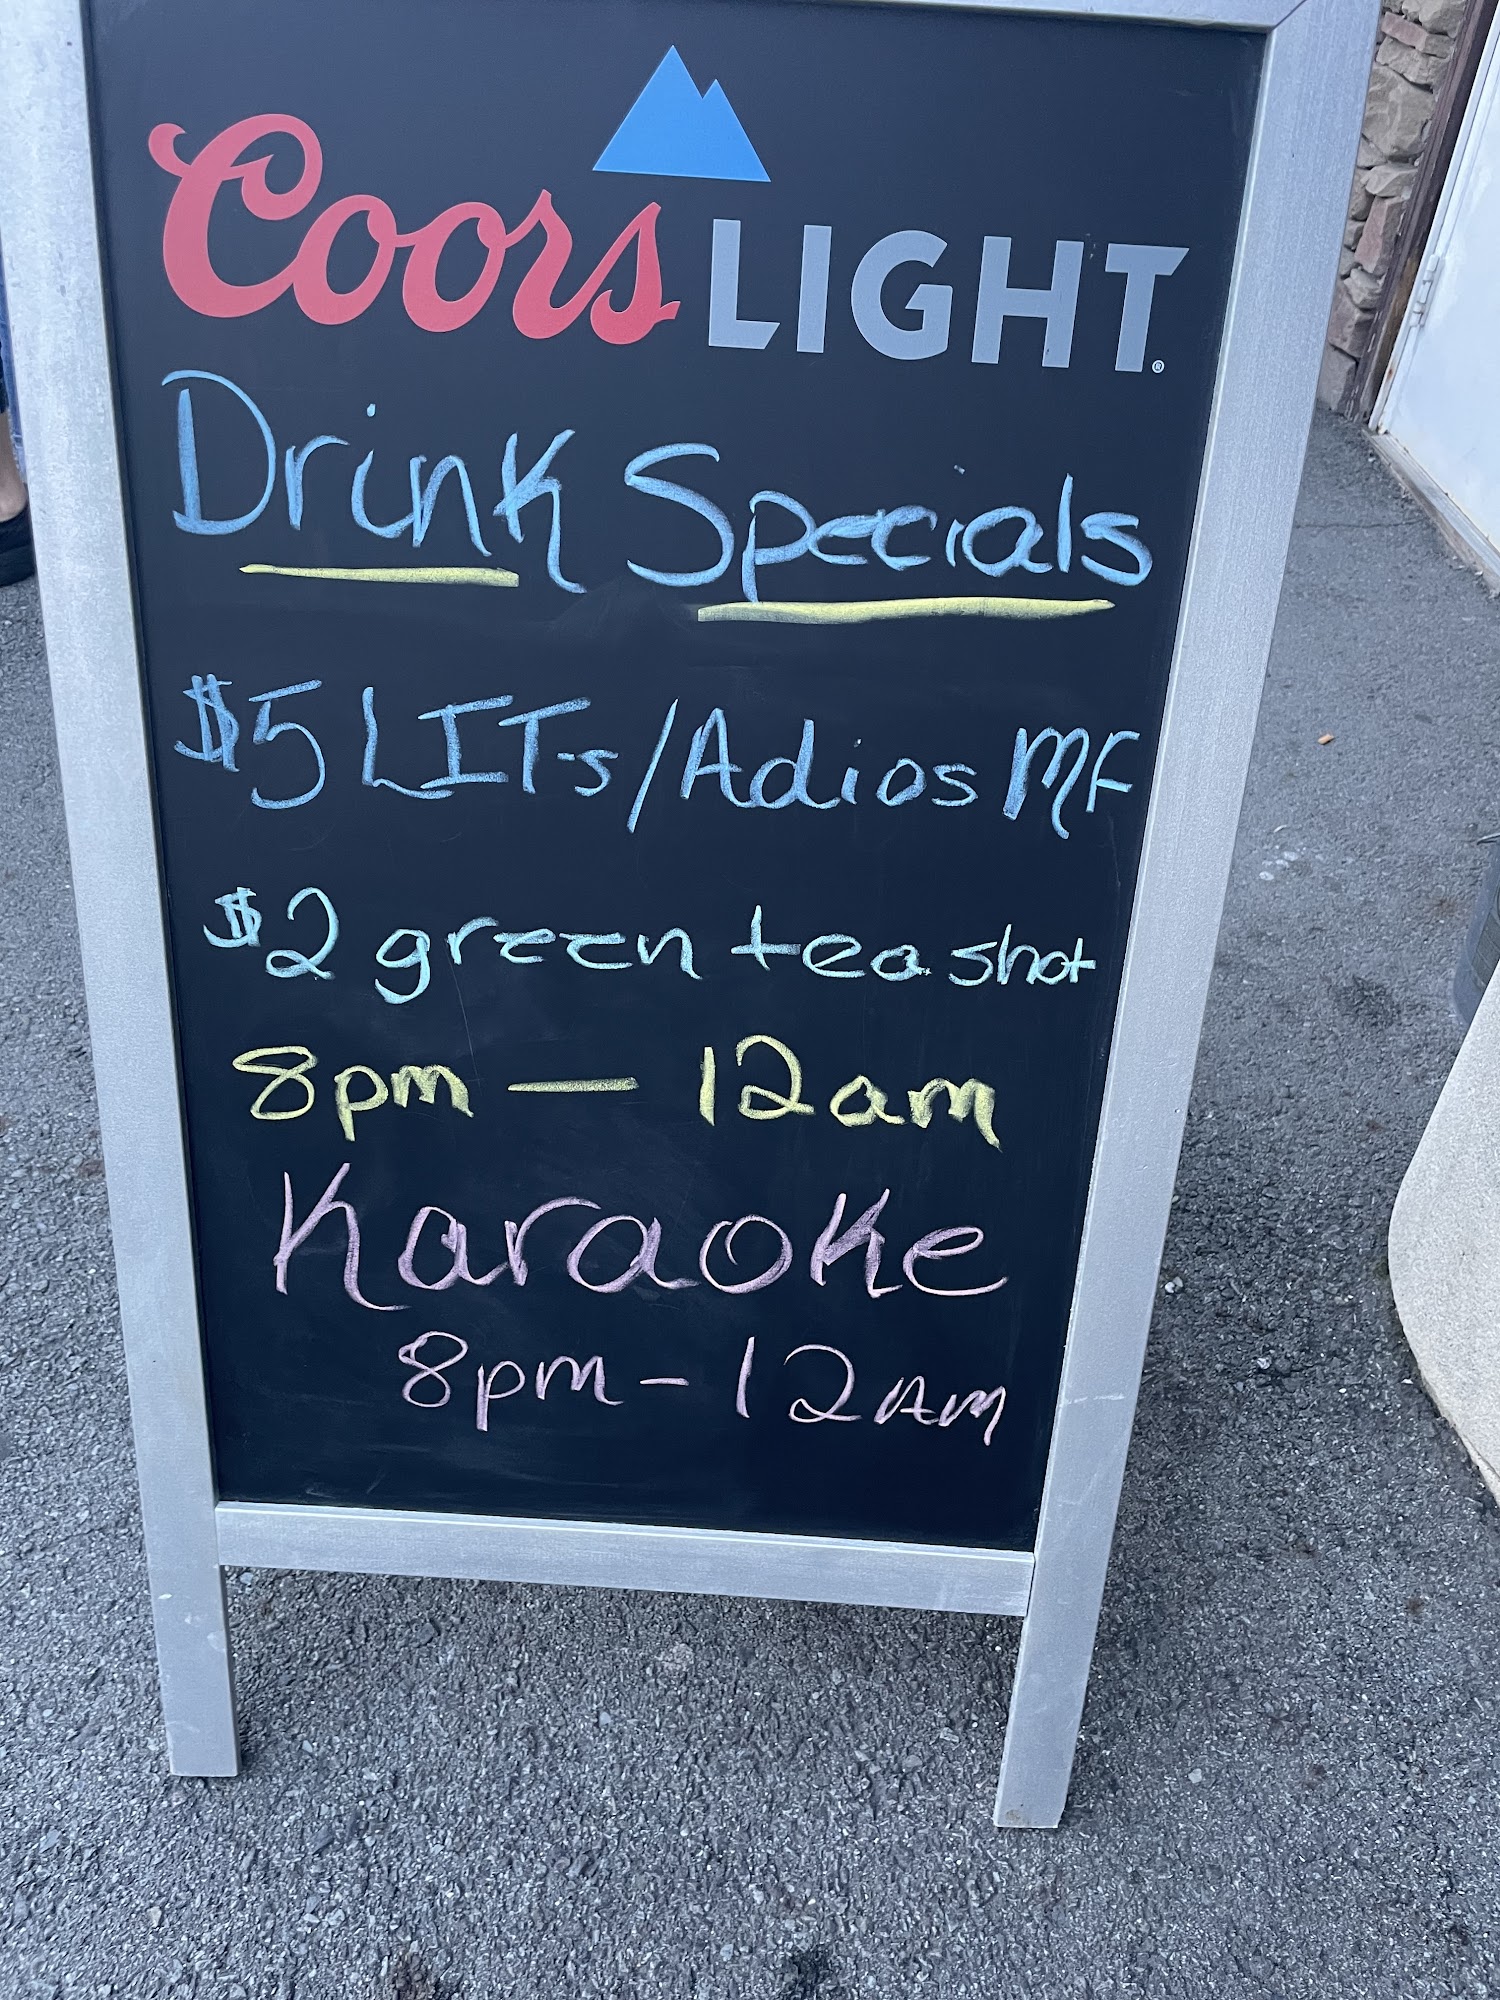 Coors LIGHT®
Drink Specials
$5 LITs/Adios MF
$2 green tea shot
8pm — 12am
Karaoke
8pm - 12AM